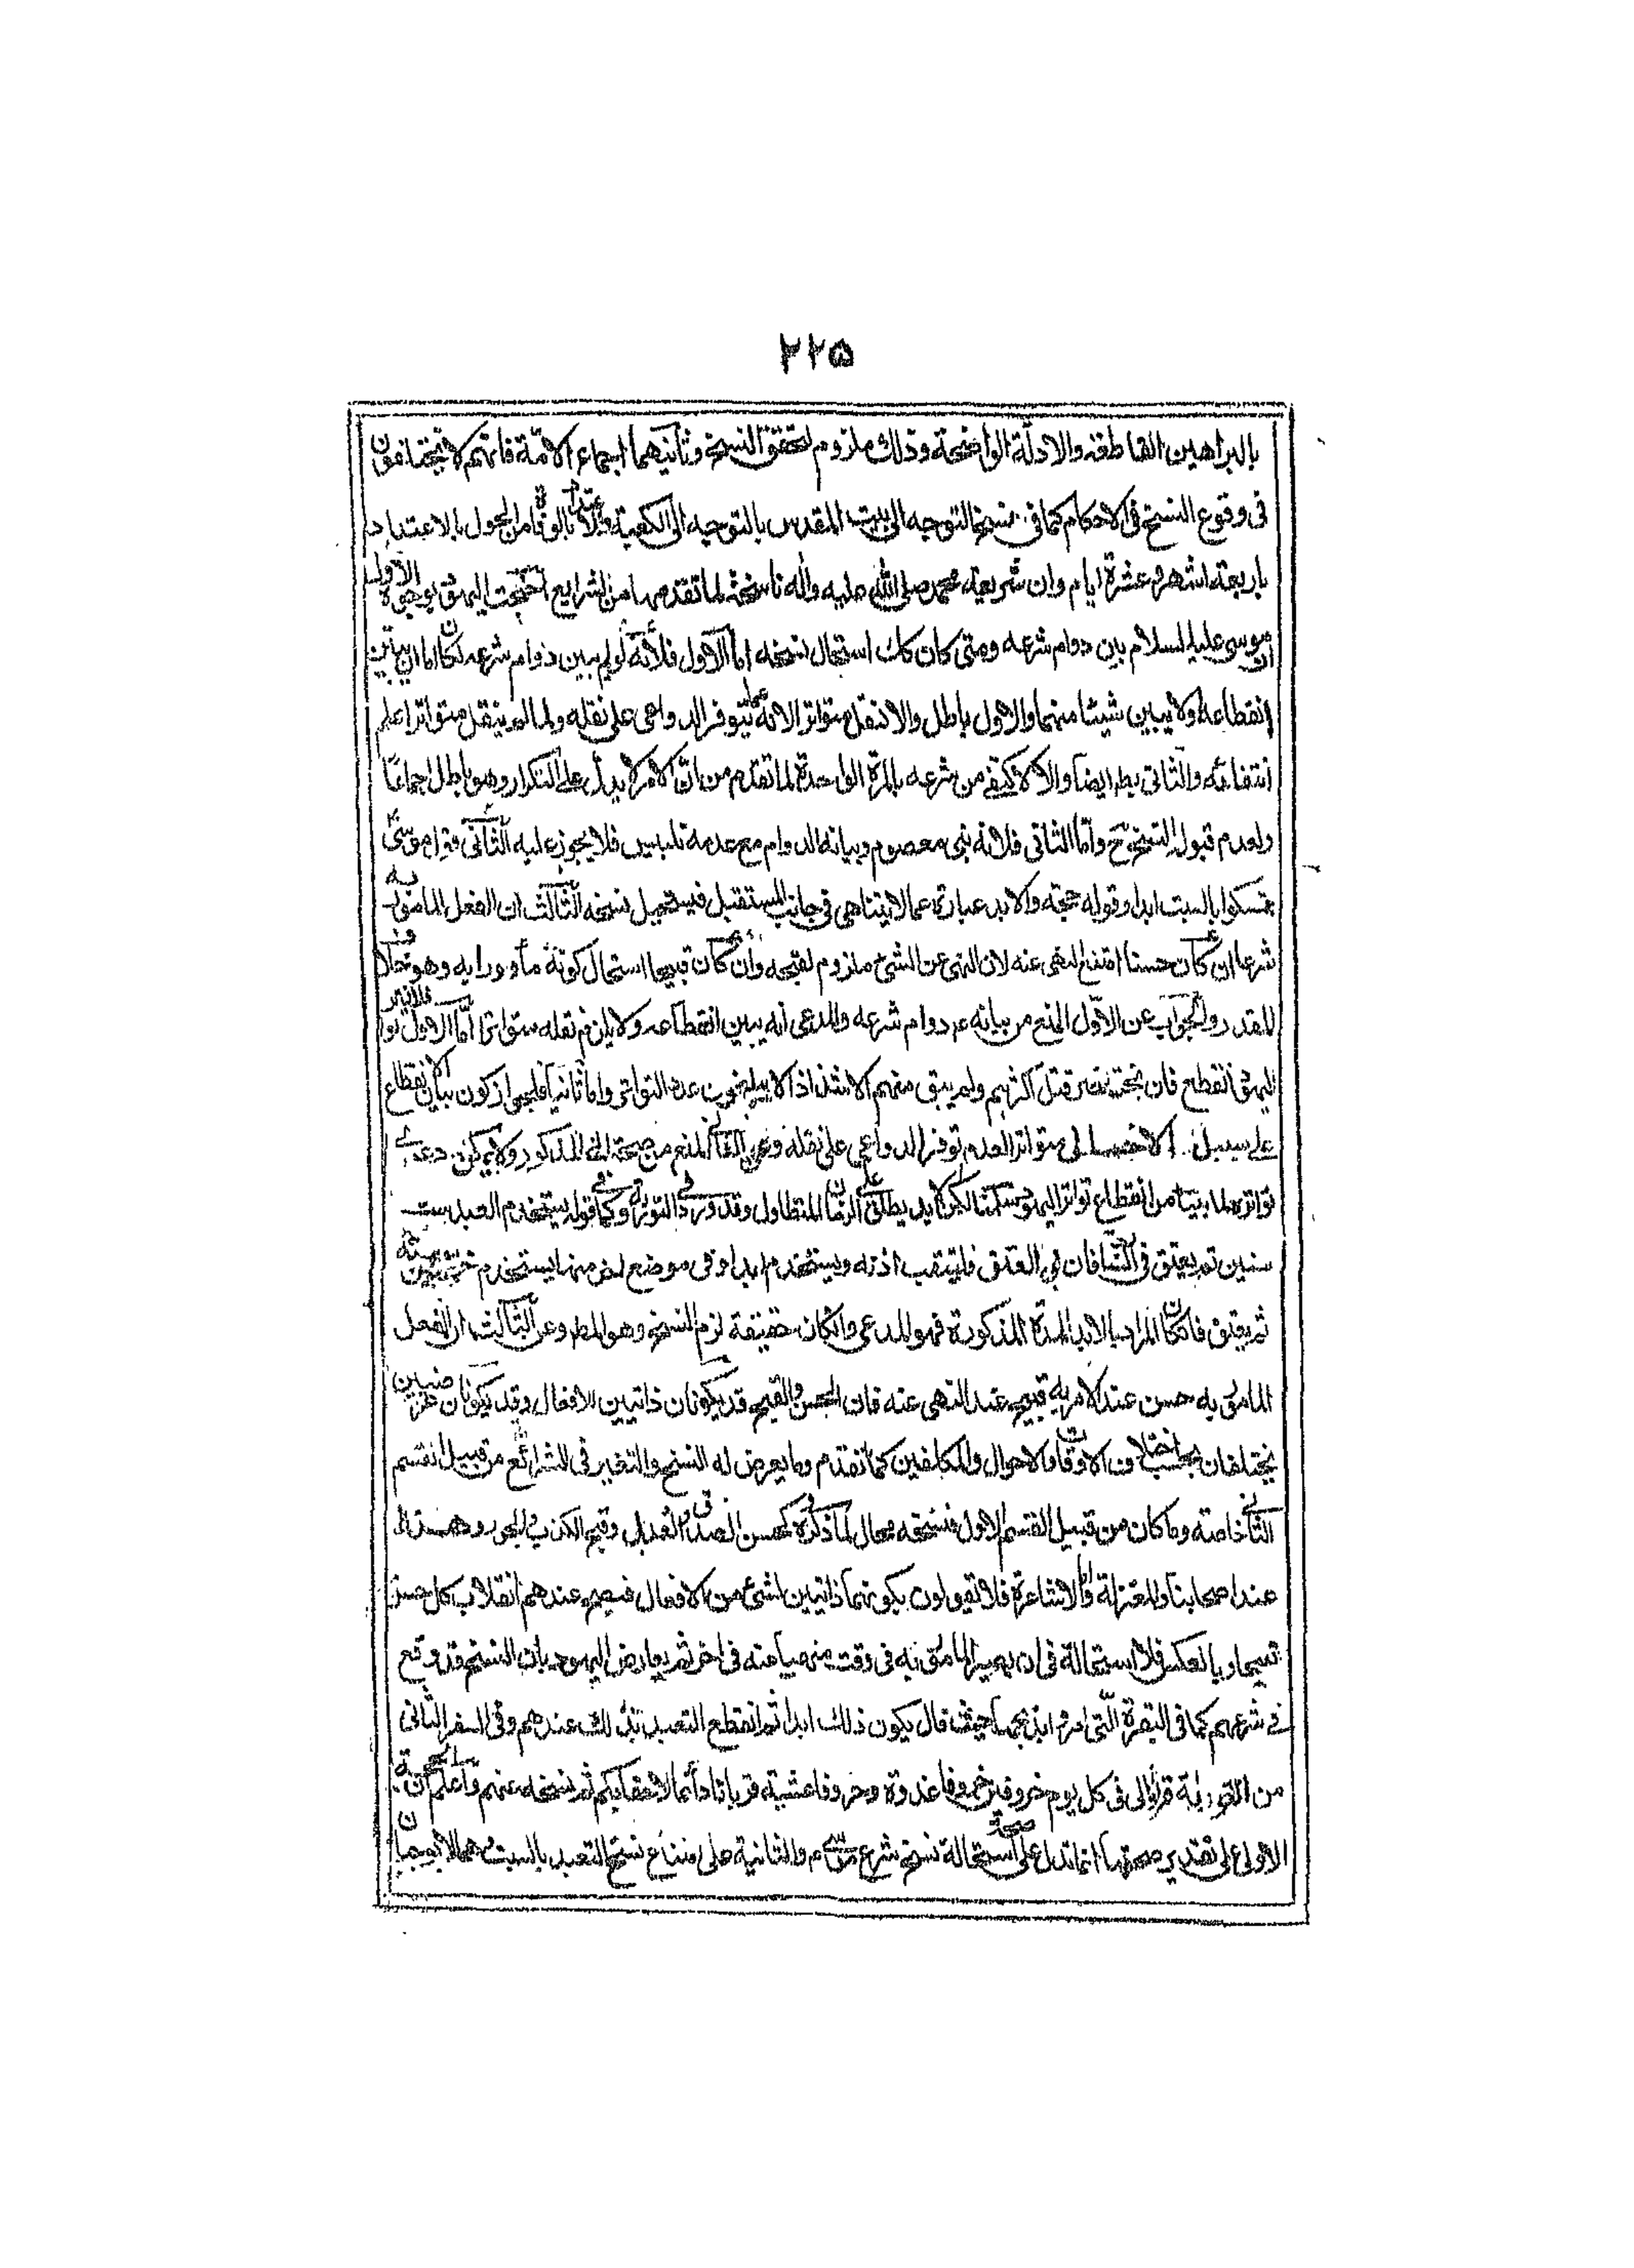 ٢٢٥
بالبراهين القاطعة والادلّة الواضحة وذلك ملزوم لتحقق النسخ وثانيهما اجماع الامّة فانهم لا يختلفون
فى وقوع النسخ فى الاحكام كما فى نسخ التوجه الى بيت المقدس بالتوجه الى الكعبة والاعتداد بالوفاة من الحول بالاعتداد
باربعة اشهر وعشرة ايام وان شريعة محمد صلى الله عليه واله ناسخة لما تقدمها من الشرايع احتجت اليهود بوجوه الاول
ان موسى عليه السلام بين دوام شرعه ومتى كان كك استحال نسخه اما الاول فلانه لو لم يبين دوام شرعه لكان اما ان يبين
انقطاعه ولا يبين شيئا منهما والاول باطل والا لنقل متواترا لانه مما يتوفر الدواعى على نقله ولما لم ينقل متواترا علم
انتفائه والثانى بط ايضا والا لاكتفى من شرعه بالمرة الواحدة لما تقدم من انّ الامر لا يدل على التكرار وهو باطل اجماعًا
ولعدم قبول النسخ ح وامّا الثانى فلانه نبى معصوم وبيانه الدوام مع عدمه تلبيس فلا يجوز عليه الثانى قول موسى
تمسكوا بالسبت ابدا وقوله حجة والابد عبارة عما لا يتناهى فى جانب المستقبل فيستحيل نسخه الثالث ان الفعل المامور به
شرعا ان كان حسنا امتنع النهى عنه لان النهى عن الشئ ملزوم لقبحه وان كان قبيحا استحال كونه مأمورا به وهو خلاف
المقدر والجواب عن الاوّل المنع من بيانه ع دوام شرعه والمدعى انه يبين انقطاعه ولا يلزم نقله متواترا امّا اولا فلان تواتر
اليهود انقطع فان بخت نصر قتل اكثرهم ولم يبق منهم الا شذاذ لا يبلغون عدد التواتر واما ثانيا فلجواز كون بيان الانقطاع
على سبيل الاجمال متواترا لعدم توفر الدواعى على نقله وعن الثانى المنع من صحة الخبر المذكور ولا يمكن دعوى
تواتره لما بينا من انقطاع تواتر اليهود سلمنا لكن لابد يطلق على الزمان المتطاول وقد ورد فى التورية كما فى قوله يستخدم العبد ست
سنين ثم يعتق فى السابعة فان ابى العتق فليثقب اذنه ويستخدم ابدا وفى موضع اخر منها يستخدم خمسين سنة
ثم يعتق فان كان المراد بالابد المدة المذكورة فهو المدعى وان كان حقيقة لزم النسخ وهو المط وعن الثالث ان الفعل
المامور به حسن عند الامر به قبيح عند النهى عنه فان الحسن والقبح قد يكونان ذاتيين للافعال وقد يكونان عرضيين
يختلفان بحسب اختلاف الاوقات والاحوال والمكلفين كما تقدم وما يعرض له النسخ والتغير فى الشرائع من قبيل القسم
الثانى خاصة وما كان من قبيل القسم الاول فنسخه محال لما ذكره كحسن الصدق والعدل وقبح الكذب والجور وهذا
عند اصحابنا والمعتزلة واما الاشاعرة فلا يقولون بكونهما ذاتيين لشئ من الافعال فيصح عندهم انقلاب كل حسن
قبيحا وبالعكس فلا استحالة فى ان يصير المامور به فى وقت منهيا عنه فى اخر ثم يعارض اليهود بان النسخ قد وقع
فى شرعهم كما فى البقرة الّتى امروا بذبحها حيث قال يكون ذلك ابدا ثم انقطع التعبد بذلك عندهم وفى السفر الثانى
من التورية قربوا الى فى كل يوم خروفين خروفا غدوة وخروفا عشية قربانا دائما لاحقابكم ثم نسخه عنهم واعلم ان الحجة
الاولى على تقدير صحتها انما تدل على استحالة نسخ شرع موسى ع م والثانية على امتناع نسخ التعبد بالسبت وهما لا يوجبان